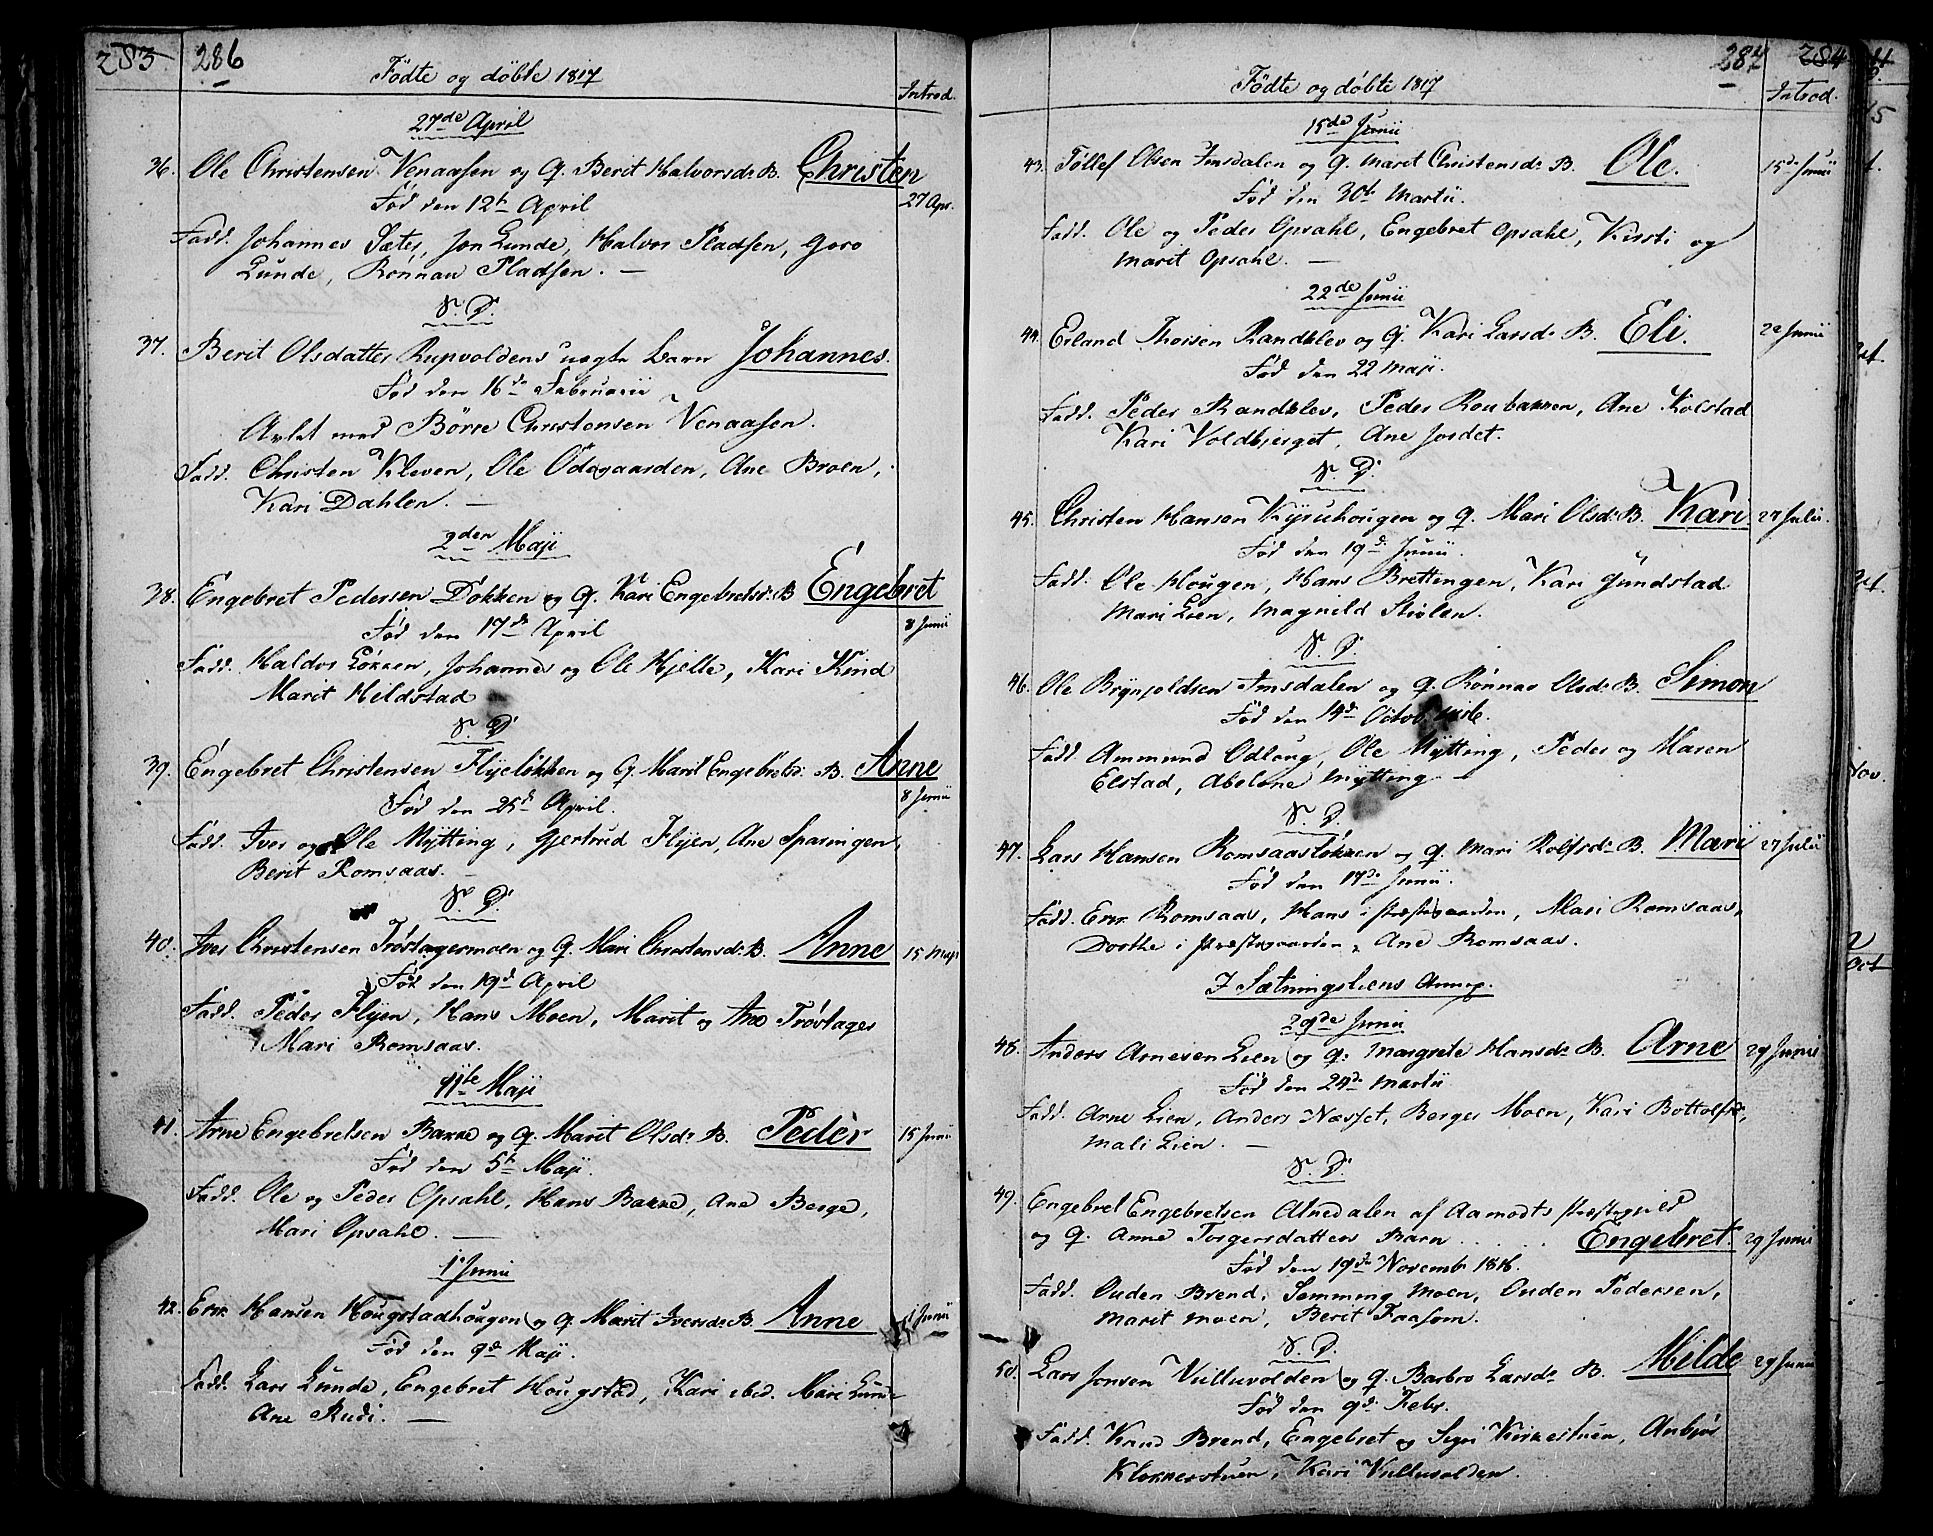 283 286
Födte og döbte 1817
Introd.
27de April
36. Ole Christensen Venaasen og Q. Berit Halvorsdr B. Christen
Föd den 12te April 27 Apr.
Fadd. Johannes Sæter, Jon Lunde, Halvor Pladsen, Goro
Lunde, Rönnau Pladsen. —
S. D.
37. Berit Olsdatter Rupvoldens uægte barn Johannes.
Föd den 16de Februarii
Avlet med Börre Christensen Venaasen.
Fadd. Christen Kleven, Ole Odegaarden, Ane Broen,
Kari Dahlen. —
2den Maji
38. Engebret Pedersen Dokken og Q. Kari Engebretsdr B. Engebret
Föd den 17de April 8 Junii
Fadd. Haldor Lökken, Johannes og Ole Hjelle, Kari Kind
Marit Hildstad
S. D.
39. Engebret Christensen Flyelökken og Q. Marit Engebretsdr B. Anne
Föd den 25de April. 8 Junii
Fadd. Iver og Ole Mytting, Gjertrud Flyen, Ane Sparingen,
Berit Romsaas. —
S. D.
40. Iver Christensen Tröstagermoen og Q. Mari Christensdr B. Anne 15 Maji
Föd den 19de April
Fadd. Peder Flyen, Hans Moen, Marit og Ane Tröstager
Mari Romsaas.
11te Maji
41. Arne Engebretsen Bakke og Q. Marit Olsdr B. Peder 15 Junii
Föd den 5te Maji.
Fadd. Ole og Peder Opsahl, Hans Bakke, Ane Berge,
Mari Opsahl. —
1 Junii
42. Erik Hansen Hougstadhougen og Q. Marit Iversdr B. Anne 1 Junii
Föd den 9de Maji.
Fadd. Lars Lunde, Engebret Hougstad, Kari ibid. Mari Lunde
Ane Rudi. —
287 284
Födte og döbte 1817
Introd.
15de Junii
43. Tollef Olsen Imsdalen og Q. Marit Christensdr B. Ole. 15de Junii
Föd den 30te Martii.
Fadd. Ole og Peder Opsahl, Engebret Opsahl, Kirsti og
Marit Opsahl. —
22de Junii
44. Erland Thorsen Randklev og Q. Kari Larsdr B. Eli. 22 Junii
Föd den 22 Maji.
Fadd. Peder Randklev, Peder Roubakken, Ane Kolstad
Kari Voldbjerget, Ane Jordet.
S. D.
45. Christen Hansen Kyruhougen og Q. Mari Olsdr B. Kari 27 Julii.
Föd den 19de Junii.
Fadd. Ole Hougen, Hans Brettingen, Kari Gundstad
Mari Lien, Magnild Stiølen.
S. D.
46. Ole Brynjoldsen Imsdalen og Q. Rönnau Olsdr B. Simon
Föd den 14de Octob. 1816.
Fadd. Ammund Odloug, Ole Mytting, Peder og Maren
Elstad, Abelone Mytting —
S. D.
47. Lars Hansen Romsaaslökken og Q. Mari Rolfsdr B. Mari 27 Julii
Föd den 17de Junii.
Fadd. Erik Romsaas, Hans i Præstegaarden, Mari Romsaas,
Dorthe i Præstegaarden, Ane Romsaas.
I Sætningsliens Annex.
29de Junii
48. Anders Arnesen Lien og Q. Margrete Hansdr B. Arne 29 Junii
Föd den 24de Martii
Fadd. Arne Lien, Anders Næsset, Berger Moen, Kari Bottolfsdr,
Mali Lien. —
S. D.
49. Engebret Engebretsen Atnedalen af Aamodts Præstegield
og Q. Anne Torgersdatters Barn . . . . . Engebret. 29 Junii
Föd den 19de Novemb. 1816.
Fadd. Ouden Brend, Semming Moen, Ouden Pedersen,
Marit Moen, Berit Faasom.
S. D.
50. Lars Jonsen Vulluvolden og Q. Barbro Larsdr B. Milde 29 Junii
Föd den 9de Febr.
Fadd. Knud Brend, Engebret og Sigri Kirkestuen, Anbjør
Klokkerstuen, Kari Vulluvolden.